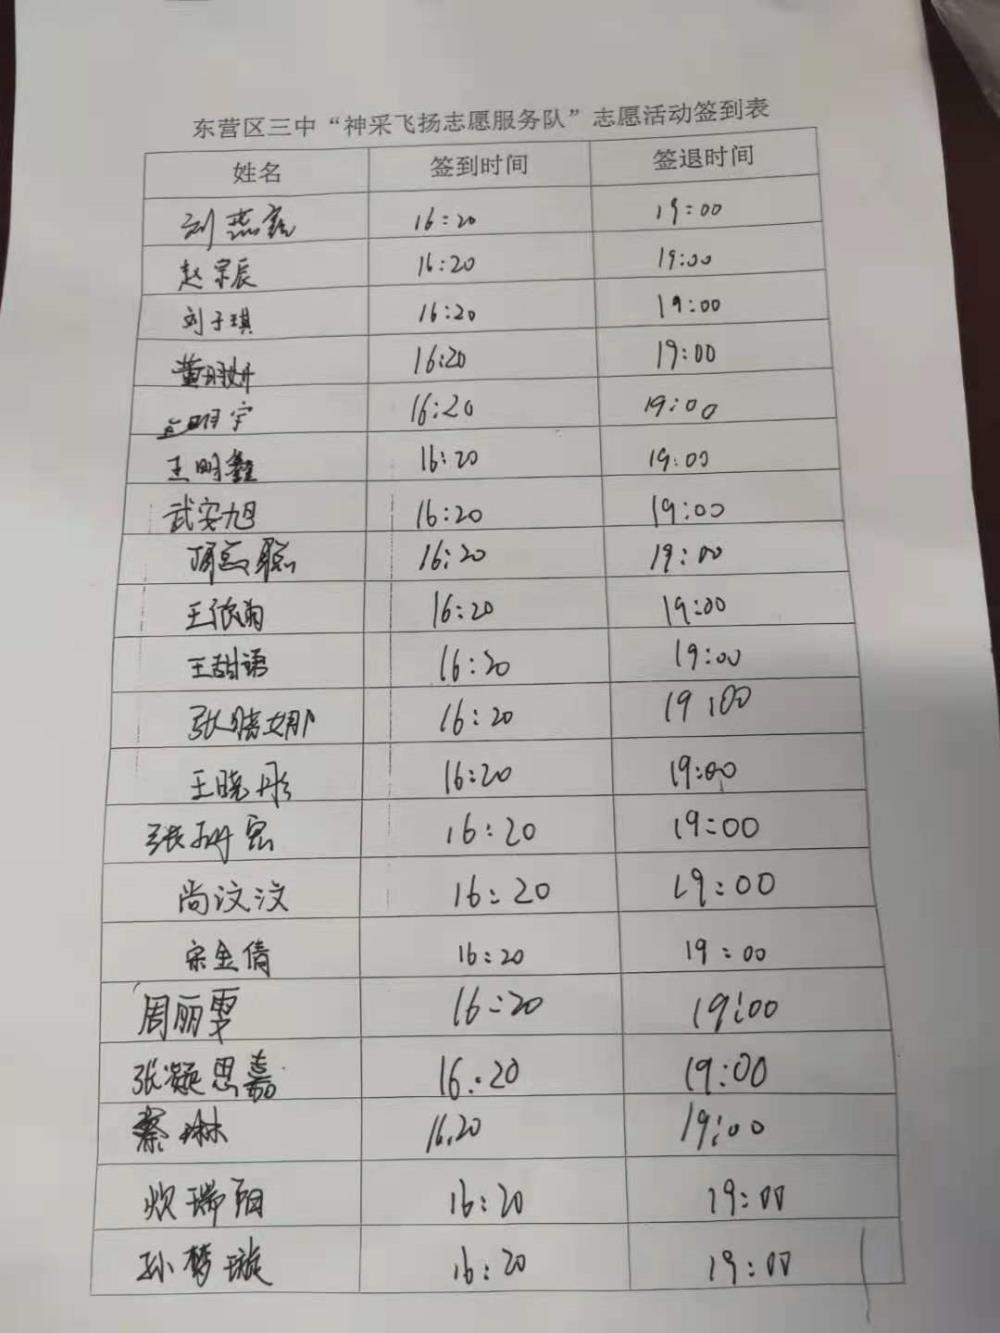 东营区三中“神采飞扬志愿服务队”志愿活动签到表
姓名 签到时间 签退时间
刘燕 16:20 19:00
赵宗辰 16:20 19:00
刘子琪 16:20 19:00
董 16:20 19:00
宇 16:20 19:00
王明鑫 16:20 19:00
武安旭 16:20 19:00
聪 16:20 19:00
王依雨 16:20 19:00
王甜语 16:20 19:00
张婧娜 16:20 19:00
王晓彤 16:20 19:00
张 16:20 19:00
尚汶汶 16:20 19:00
宋金倩 16:20 19:00
周丽雯 16:20 19:00
张凝思嘉 16:20 19:00
綦琳 16.20 19:00
瑞阳 16:20 19:00
孙梦璇 16:20 19:00